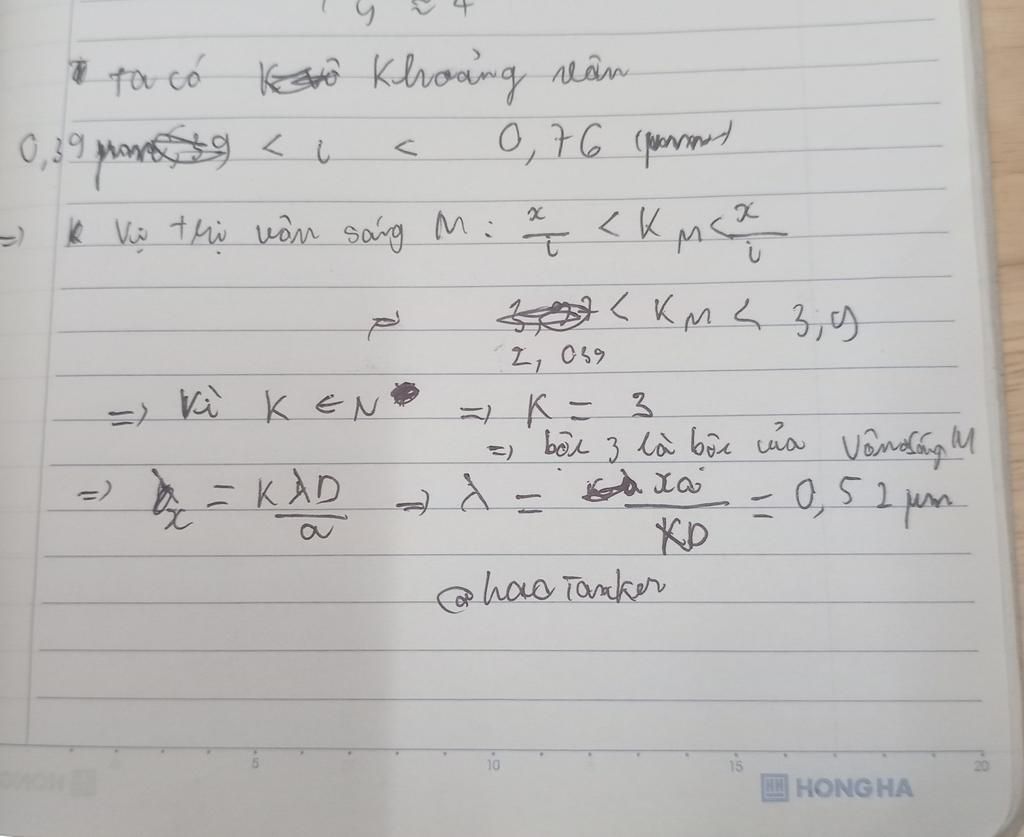 y ≈ 4
ta có Khoảng vân
0,39 < i < 0,76
=> Vị trí vân sáng M: x/i < K_M < x/i
=> 2,039 < K_M < 3,9
=> Vì K ∈ N => K = 3
=> bậc 3 là bậc của Vân sáng M
=> x = KλD/a => λ = xa/KD = 0,52 μm
@haoTanker
5 10 15 20
HONG HA